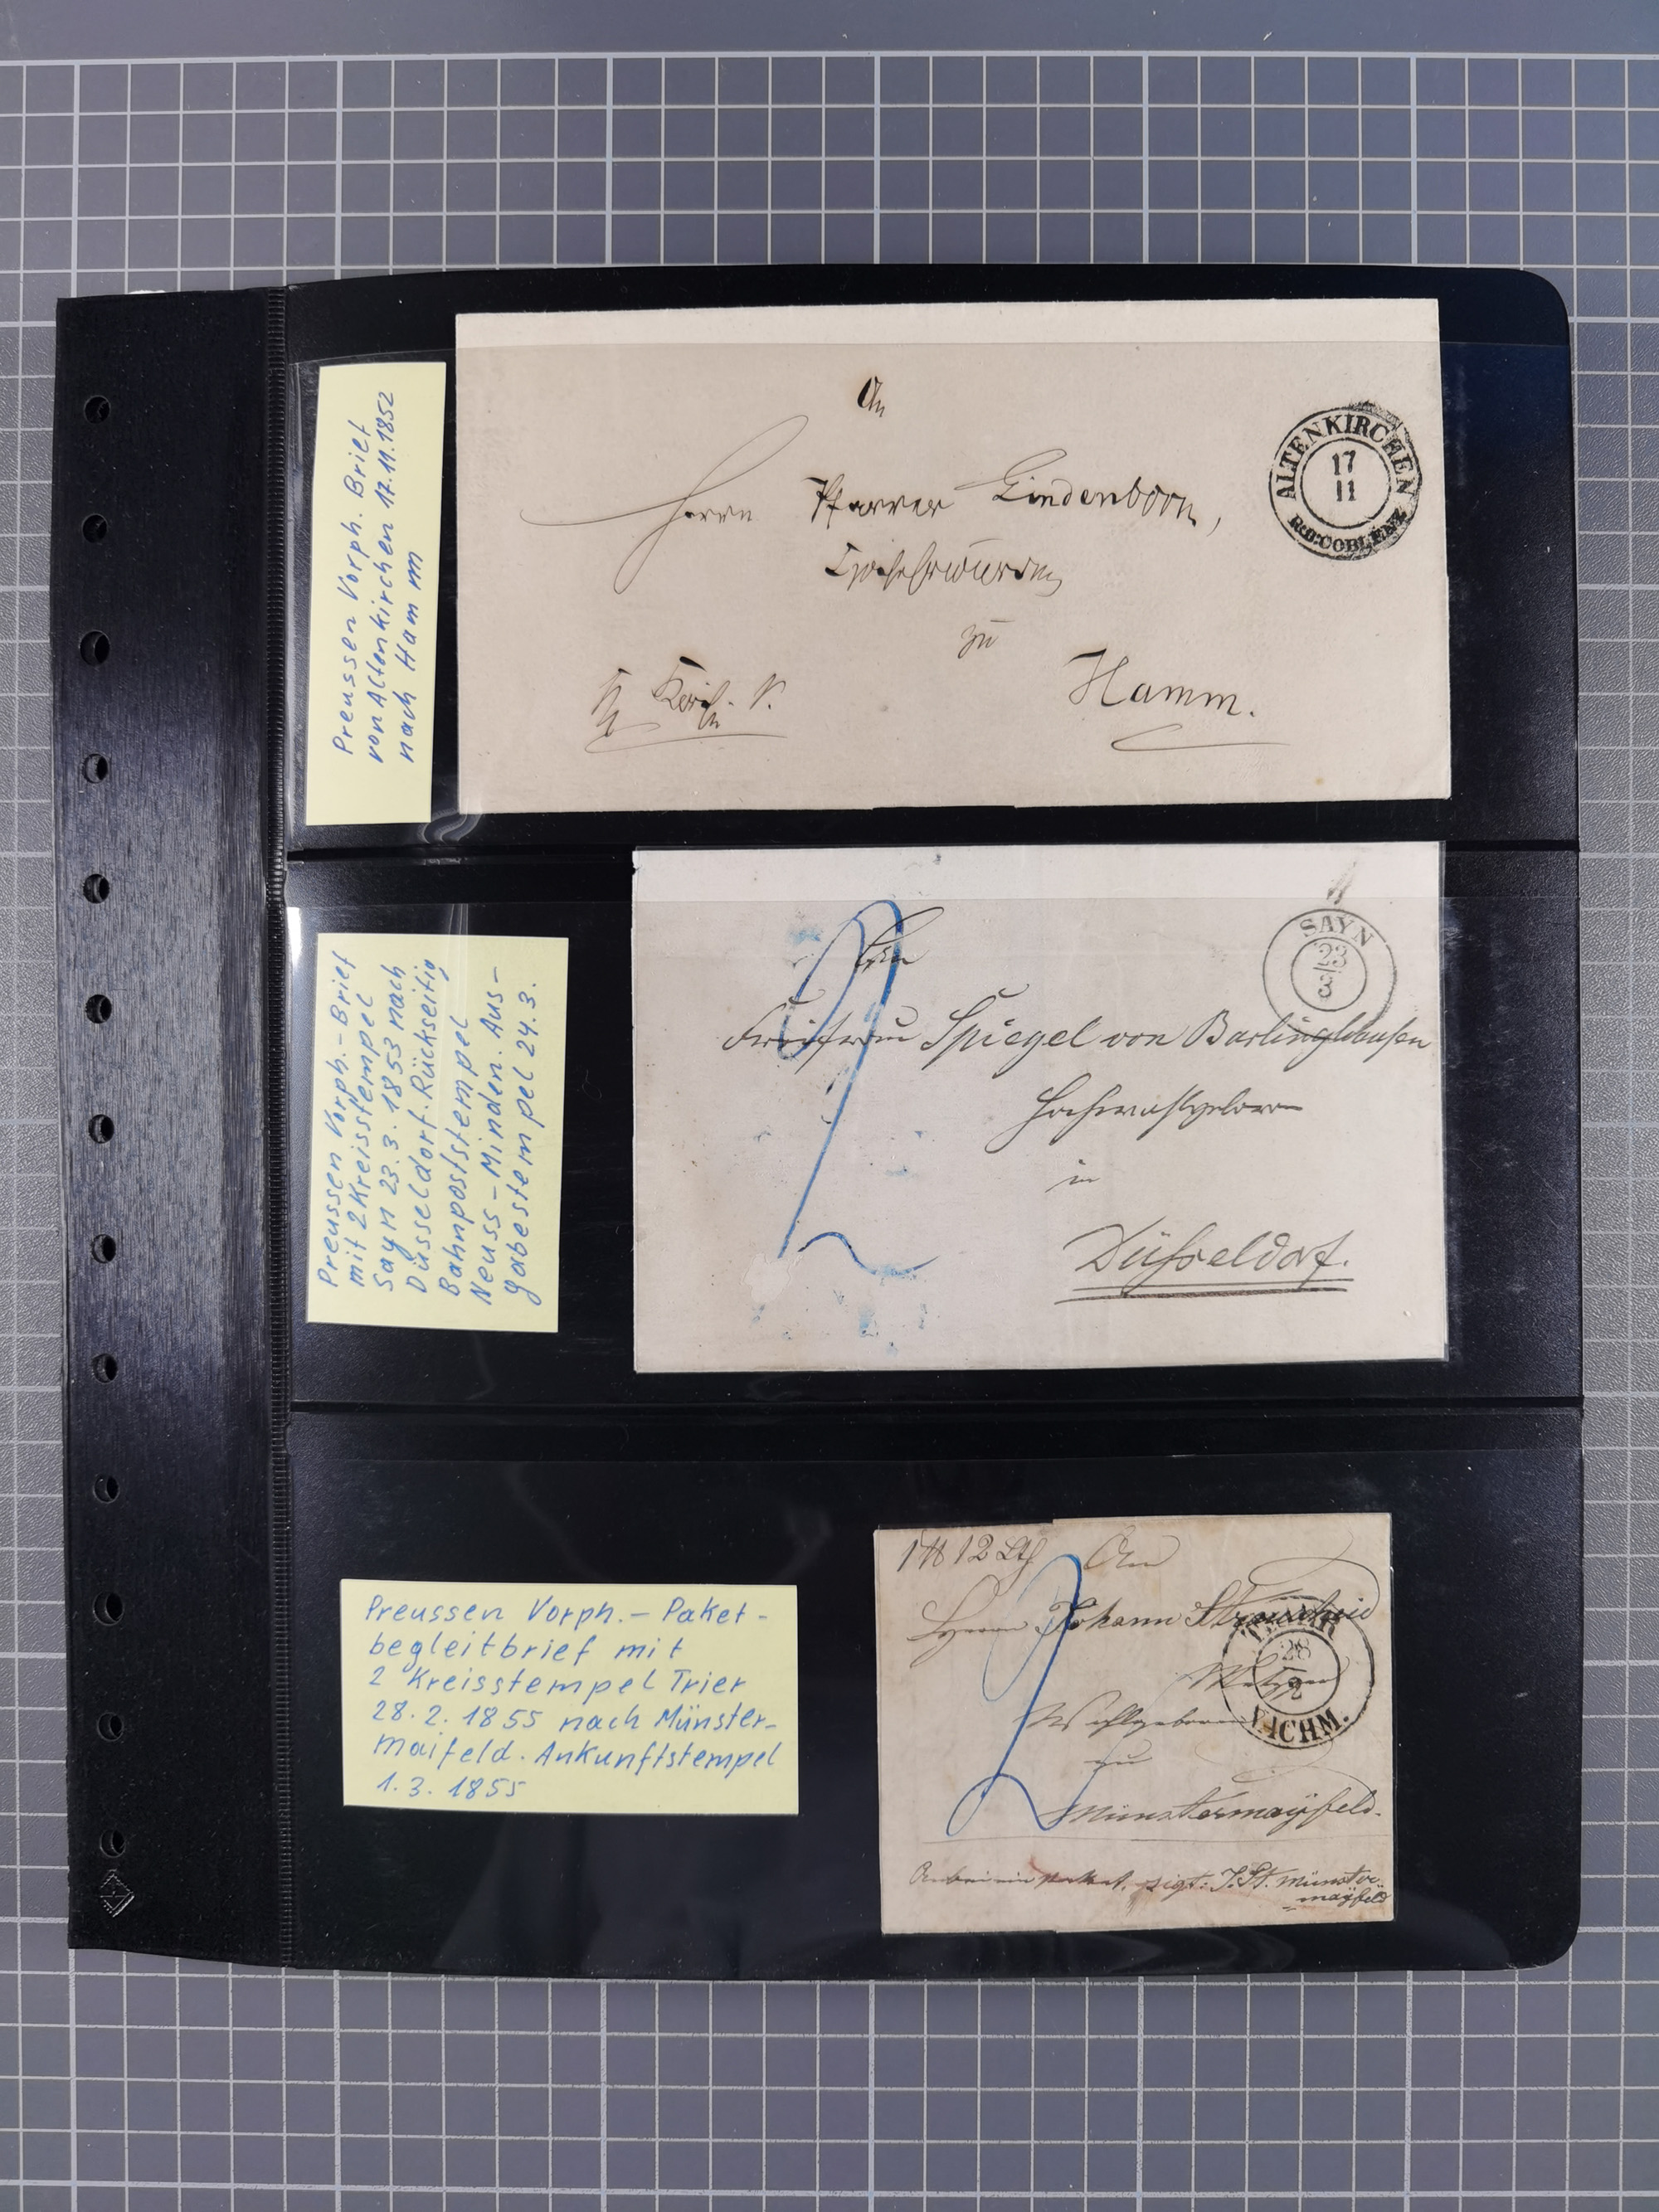 Preussen Vorph. Brief
von Altenkirchen 17.11.1852
nach Hamm
An
Herrn Pfarrer Lindenborn,
zu
Hamm.
ALTENKIRCHEN
17
11
R:B:COBLENZ
Preussen Vorph.- Brief
mit 2 Kreisstempel
Sayn 23.3.1853 nach
Düsseldorf. Rückseitig
Bahnpoststempel
Neuss - Minden. Aus-
gabestempel 24.3.
SAYN
23
3
Freifrau Spiegel von Borlinghausen
Hochwohlgeboren
in
Düsseldorf.
Preussen Vorph.- Paket-
begleitbrief mit
2 Kreisstempel Trier
28.2.1855 nach Münster-
maifeld. Ankunftstempel
1.3.1855
12 Lth An
Herrn Johann
Wohlgeboren
zu
Münstermaÿfeld.
TRIER
28
2
VICHM.
Anbei ein Paket, sigt: J. St. Münster
maÿfeld